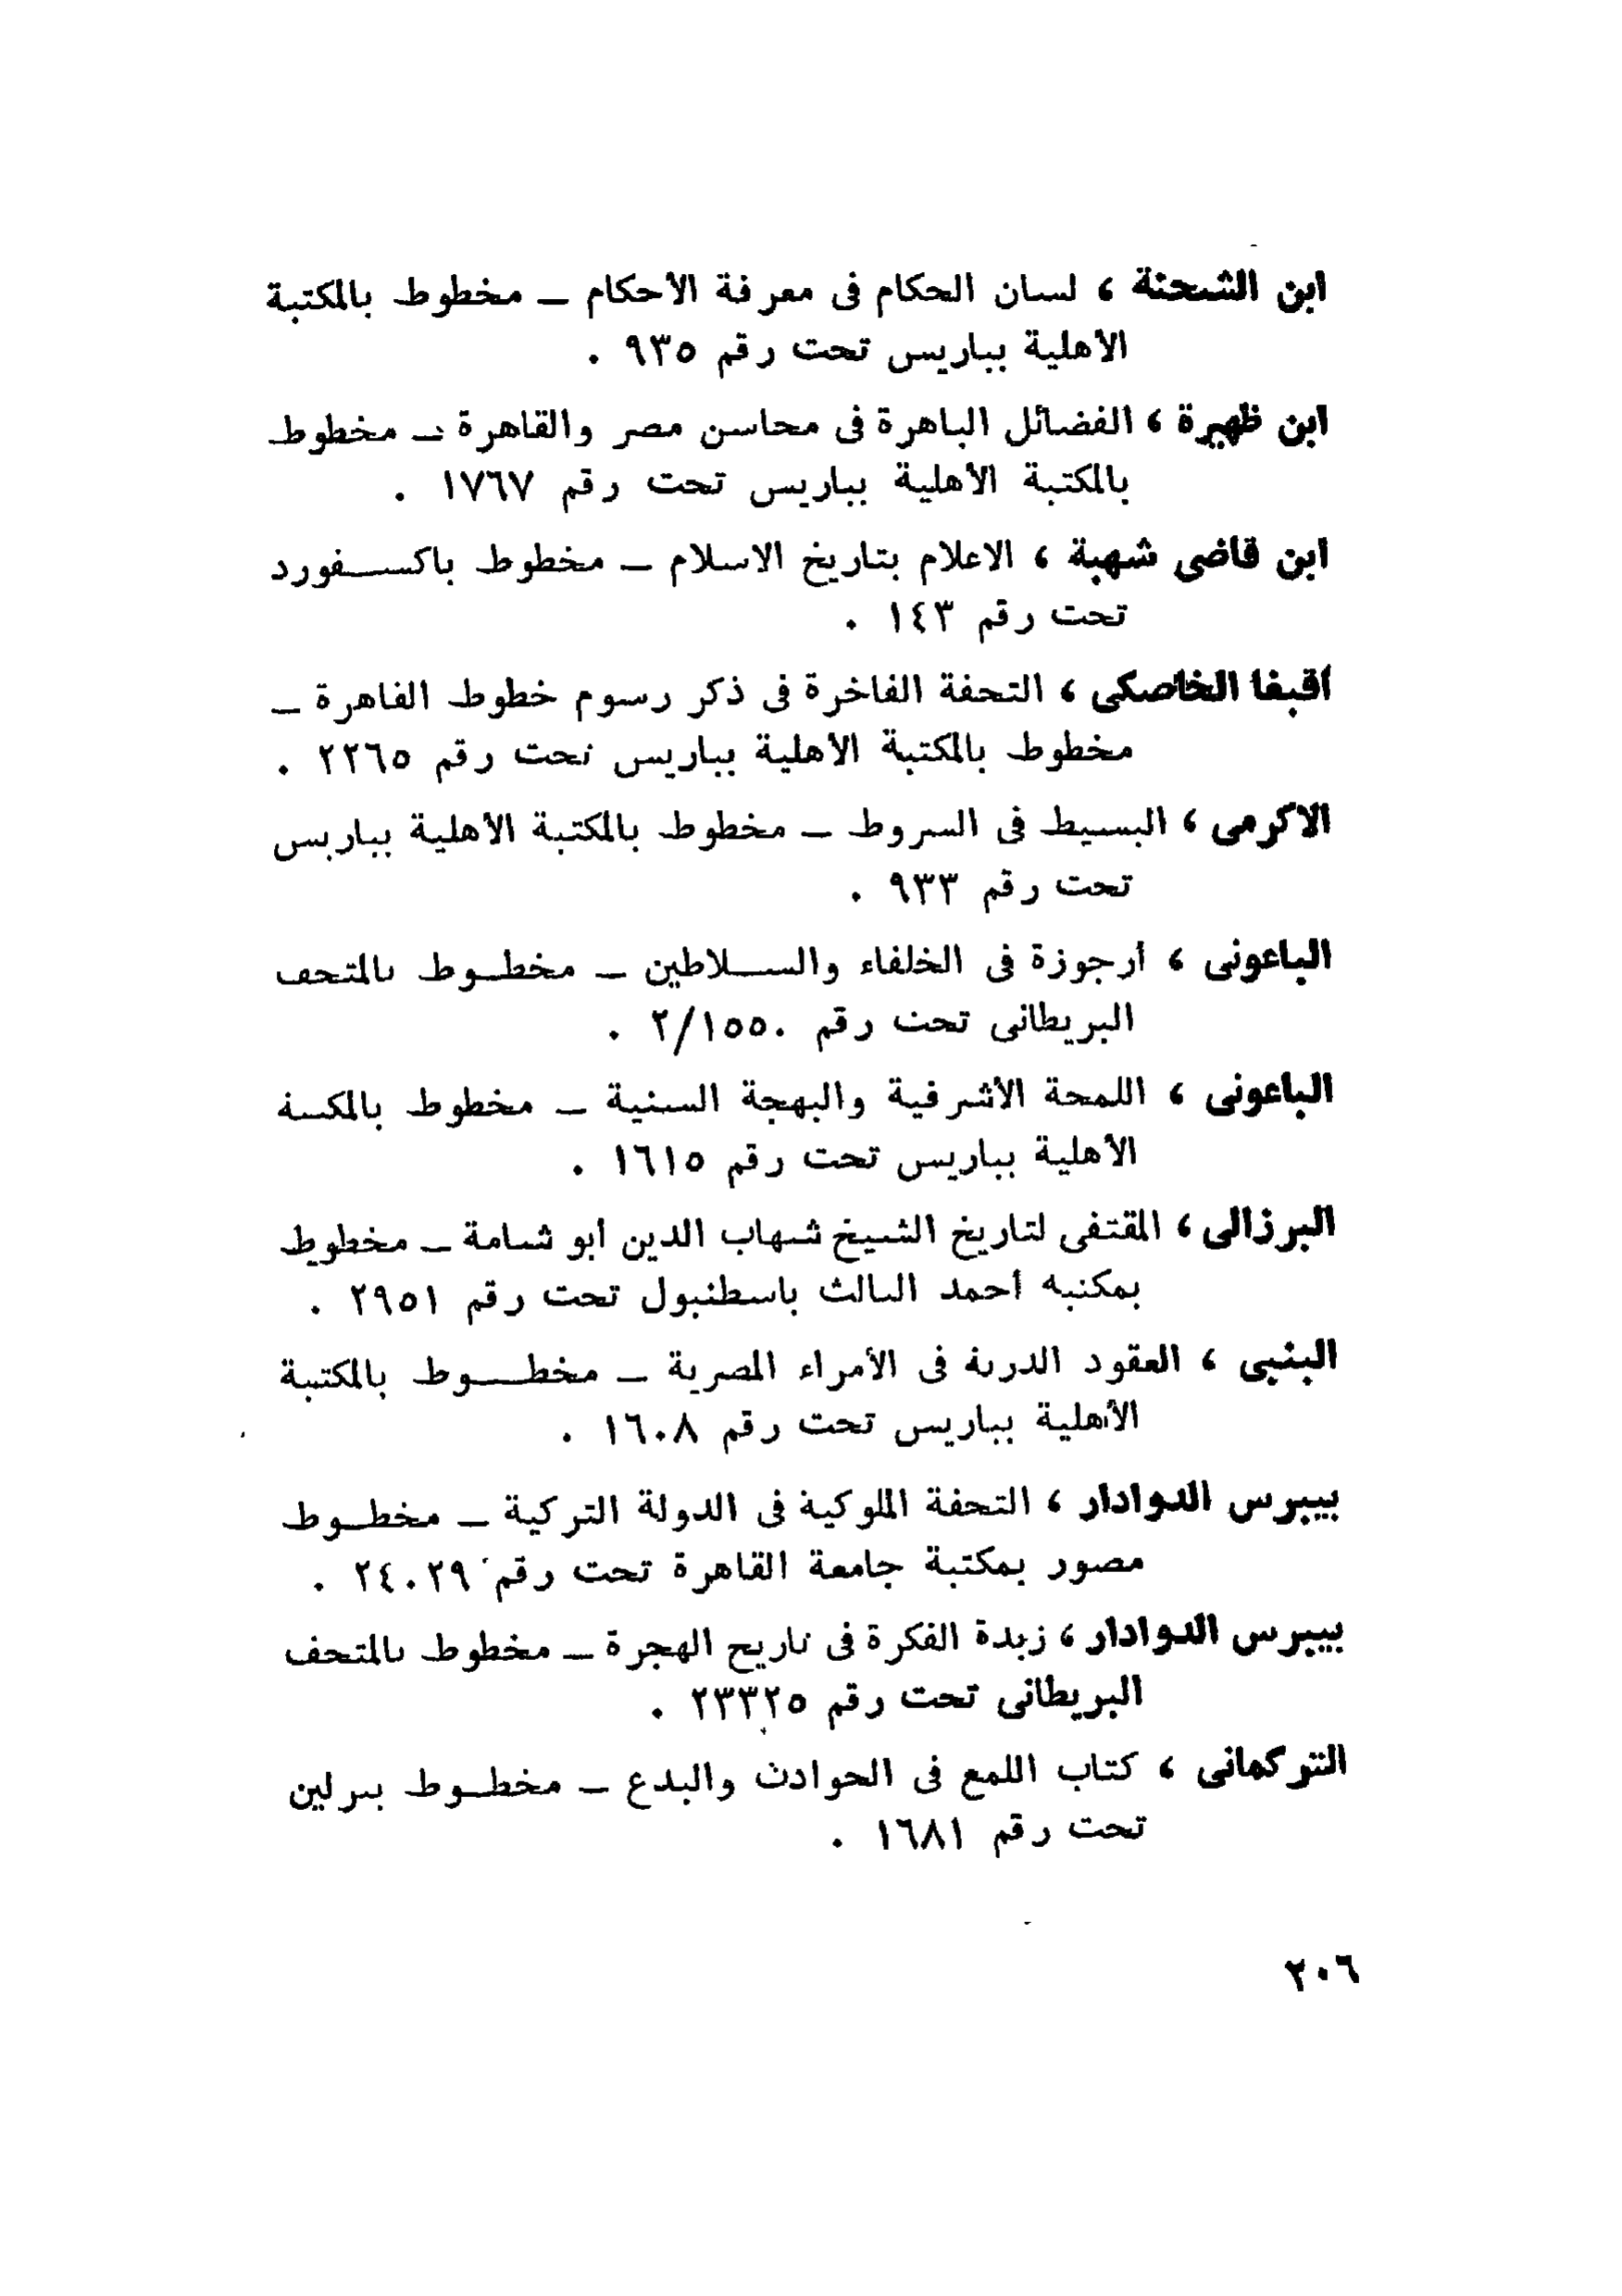 ابن الشحنة ، لسان الحكام فى معرفة الأحكام ــ مخطوط بالمكتبة
الأهلية بباريس تحت رقم ٩٣٥ .
ابن ظهيرة ، الفضائل الباهرة فى محاسن مصر والقاهرة ــ مخطوط
بالمكتبة الأهلية بباريس تحت رقم ١٧٦٧ .
ابن قاضى شهبة ، الاعلام بتاريخ الاسلام ــ مخطوط باكسفورد
تحت رقم ١٤٣ .
أقبغا الخاصكى ، التحفة الفاخرة فى ذكر رسوم خطوط القاهرة ــ
مخطوط بالمكتبة الأهلية بباريس تحت رقم ٢٢٦٥ .
الاكرمى ، البسيط فى الشروط ــ مخطوط بالمكتبة الأهلية بباريس
تحت رقم ٩٣٣ .
الباعونى ، أرجوزة فى الخلفاء والسلاطين ــ مخطوط بالمتحف
البريطانى تحت رقم ١٥٥٠/٢ .
الباعونى ، اللمحة الأشرفية والبهجة السنية ــ مخطوط بالمكتبة
الأهلية بباريس تحت رقم ١٦١٥ .
البرزالى ، المقتفى لتاريخ الشيخ شهاب الدين أبو شامة ــ مخطوط
بمكتبة أحمد الثالث باسطنبول تحت رقم ٢٩٥١ .
البثبى ، العقود الدرية فى الأمراء المصرية ــ مخطوط بالمكتبة
الأهلية بباريس تحت رقم ١٦٠٨ .
بيبرس الدوادار ، التحفة الملوكية فى الدولة التركية ــ مخطوط
مصور بمكتبة جامعة القاهرة تحت رقم ٢٤٠٢٩ .
بيبرس الدوادار ، زبدة الفكرة فى تاريخ الهجرة ــ مخطوط بالمتحف
البريطانى تحت رقم ٢٣٣٢٥ .
التركمانى ، كتاب اللمع فى الحوادث والبدع ــ مخطوط ببرلين
تحت رقم ١٦٨١ .
٢٠٦